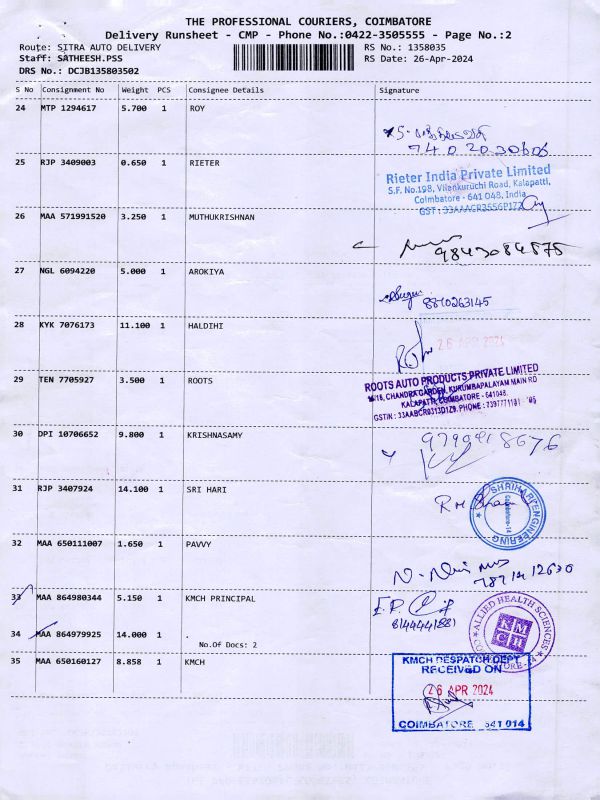 THE PROFESSIONAL COURIERS, COIMBATORE
Delivery Runsheet - CMP - Phone No.:0422-3505555 - Page No.:2
Route: SITRA AUTO DELIVERY RS No.: 1358035
Staff: SATHEESH.PSS RS Date: 26-Apr-2024
DRS No.: DCJB135803502
S No Consignment No Weight PCS Consignee Details Signature
24 MTP 1294617 5.700 1 ROY
7402030606
25 RJP 3409003 0.650 1 RIETER
Rieter India Private Limited
S.F. No.198, Vilankuruchi Road, Kalapatti,
Coimbatore - 641 048, India
GST : 33AAACR3556P1Z2
26 MAA 571991520 3.250 1 MUTHUKRISHNAN
9843084575
27 NGL 6094220 5.000 1 AROKIYA
8870263145
28 KYK 7076173 11.100 1 HALDIHI
26 APR 2024
29 TEN 7705927 3.500 1 ROOTS
ROOTS AUTO PRODUCTS PRIVATE LIMITED
CHANDRA GARDEN, KURUMBAPALAYAM MAIN RD
KALAPATTI, COIMBATORE - 641048.
30 DPI 10706652 9.800 1 KRISHNASAMY
31 RJP 3407924 14.100 1 SRI HARI
SHRIHARI ENGINEERING
Coimbatore-14
32 MAA 650111007 1.650 1 PAVVY
33 MAA 864980344 5.150 1 KMCH PRINCIPAL
8144441881
34 MAA 864979925 14.000 1 .
No.Of Docs: 2
ALLIED HEALTH SCIENCES
KMCH
35 MAA 650160127 8.858 1 KMCH
KMCH DESPATCH DEPT
RECEIVED ON
26 APR 2024
COIMBATORE 641 014